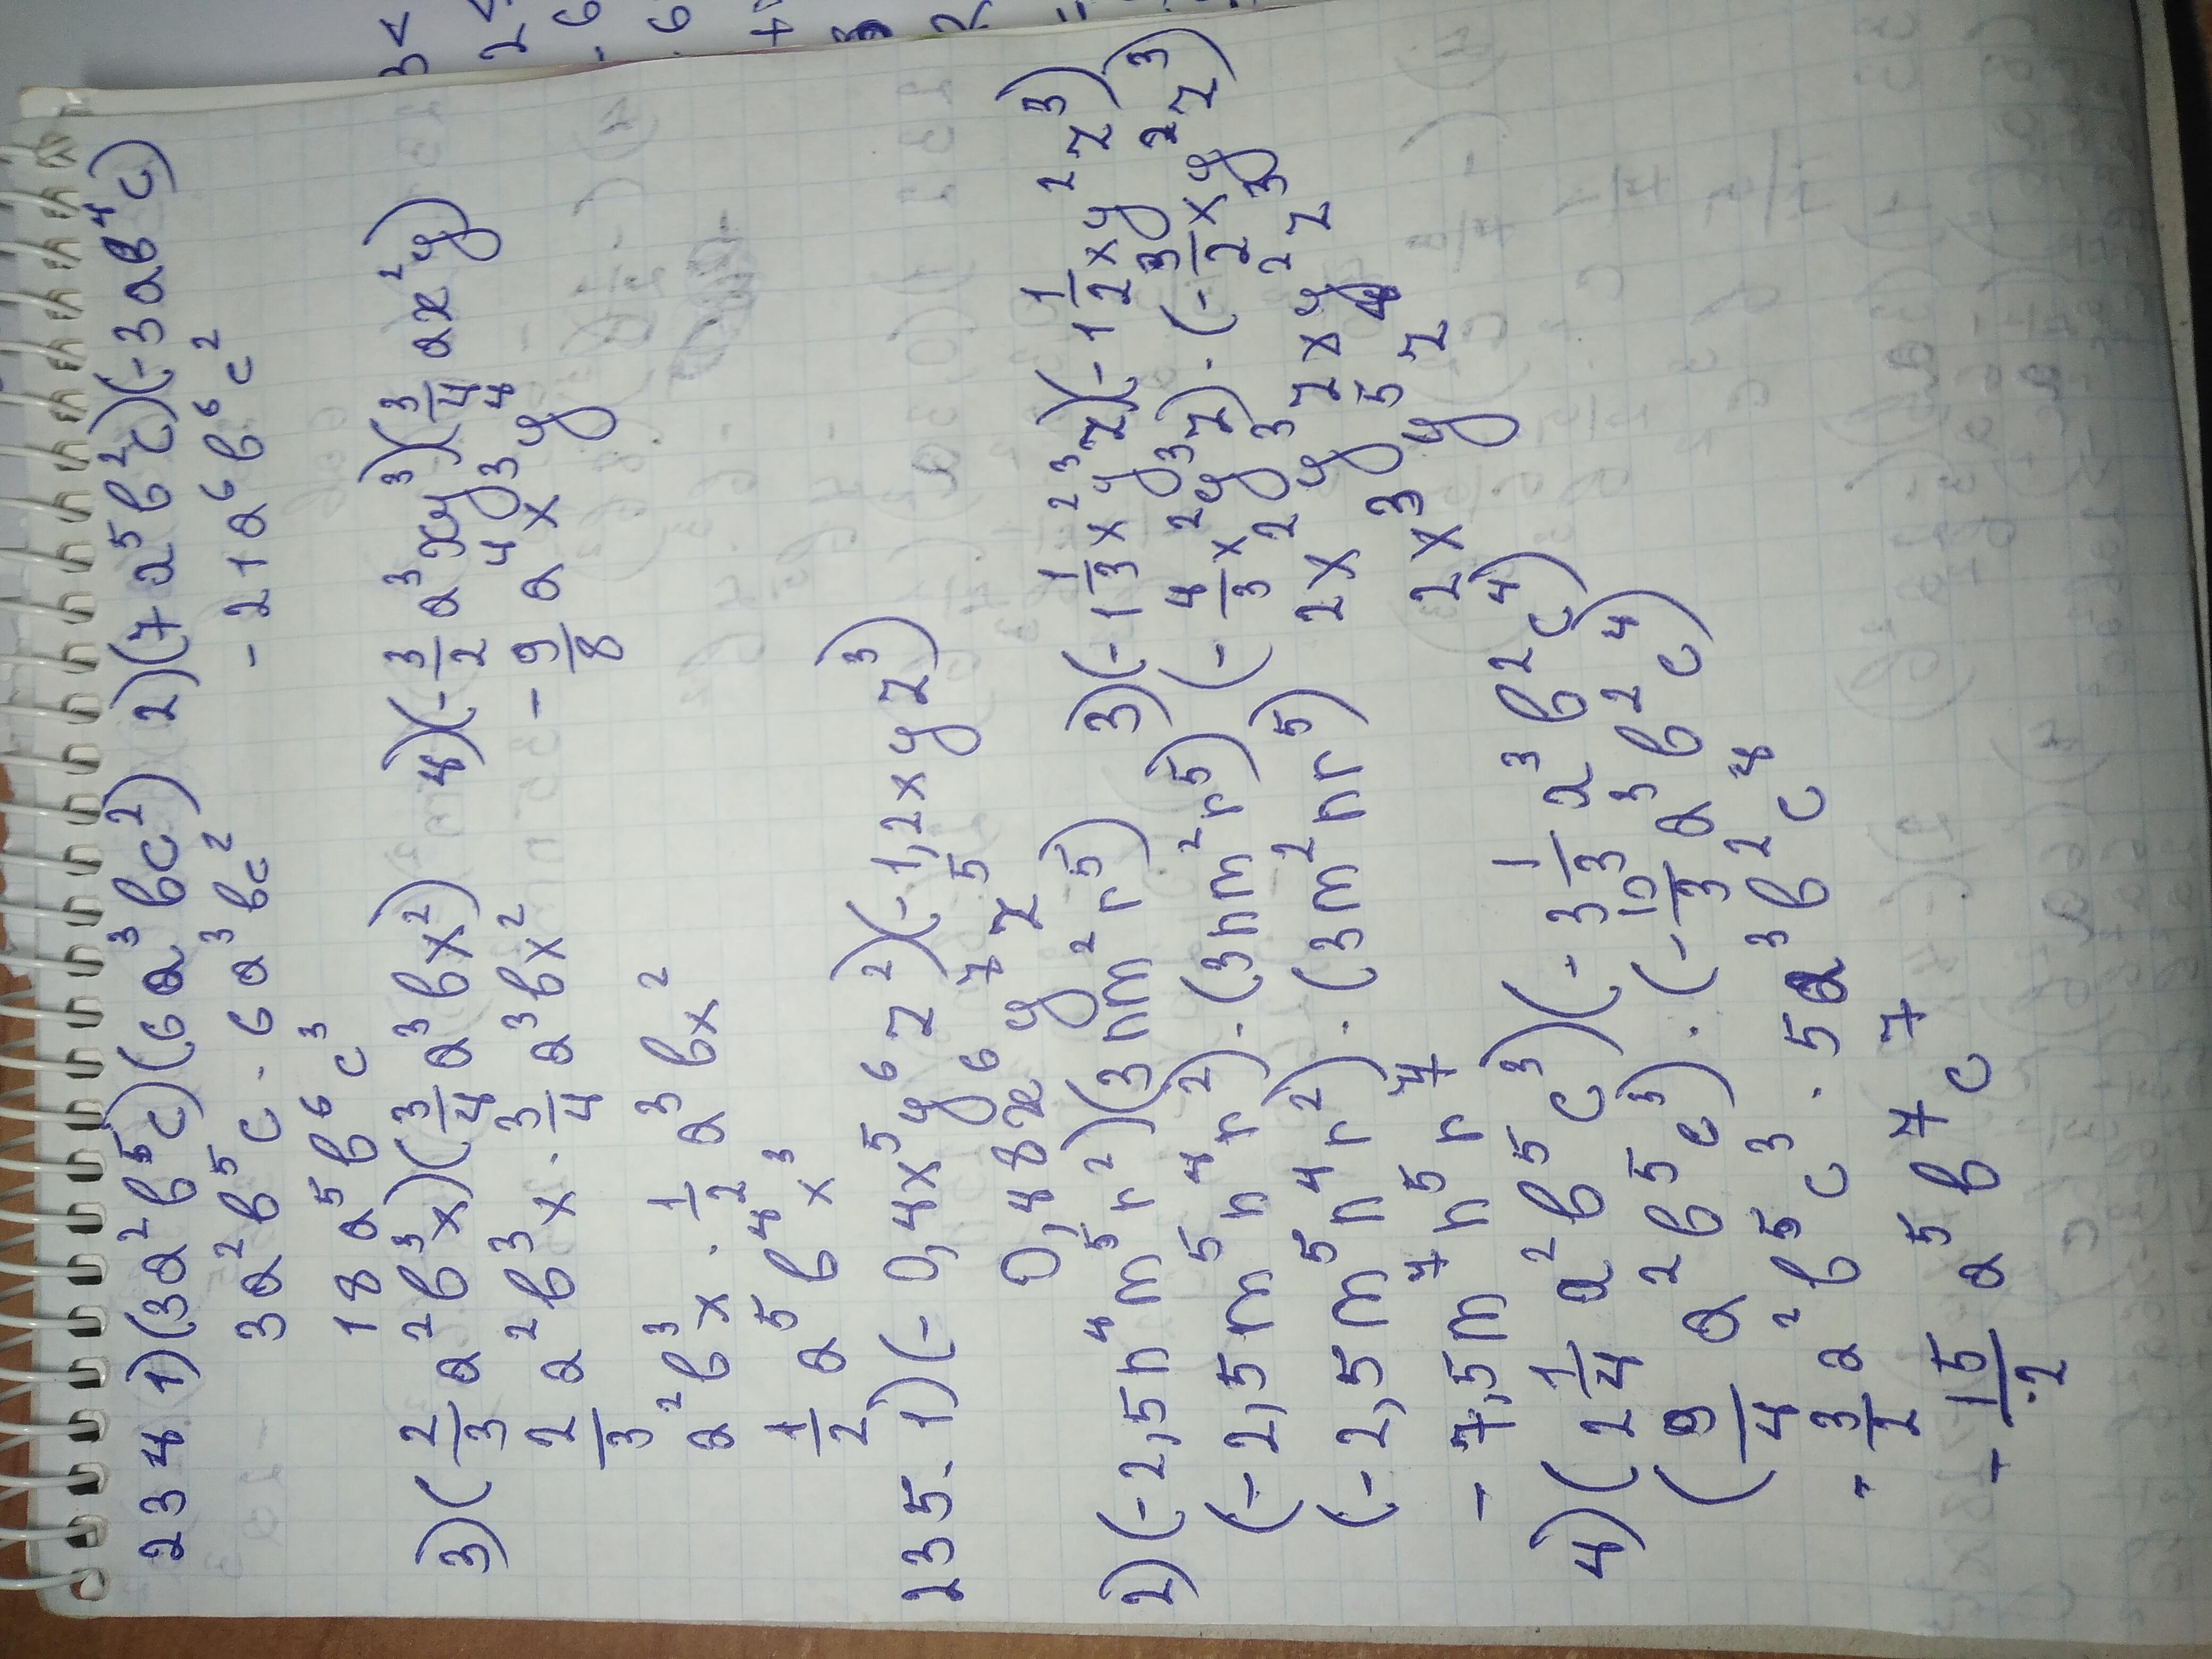 234. 1) (3a²b⁵c)(6a³bc²) 2) (7a⁵b²c)(-3ab⁴c)
3a²b⁵c · 6a³bc² -21a⁶b⁶c²
18a⁵b⁶c³
3) (2/3 a²b³x)(3/4 a³bx²) 4) (-3/2 a³xy³)(3/4 ax²y)
2/3 a²b³x · 3/4 a³bx² -9/8 a⁴x³y⁴
a²b³x · 1/2 a³bx²
1/2 a⁵b⁴x³
235. 1) (-0,4x⁵y⁶z²)(-1,2xyz³)
0,48x⁶y⁷z⁵
2) (-2,5n⁴m⁵r²)(3nm²r⁵) 3) (-1 1/3 x²y³z)(-1 1/2 xy²z³)
(-2,5m⁵n⁴r²) · (3nm²r⁵) (-4/3 x²y³z) · (-3/2 xy²z³)
(-2,5m⁵n⁴r²) · (3m²nr⁵) 2x²y³zxy²z³
-7,5m⁷n⁵r⁷ 2x³y⁵z⁴
4) (2 1/4 a²b⁵c³)(-3 1/3 a³b²c⁴)
(9/4 a²b⁵c³) · (-10/3 a³b²c⁴)
-3/2 a²b⁵c³ · 5a³b²c⁴
-15/2 a⁵b⁷c⁷